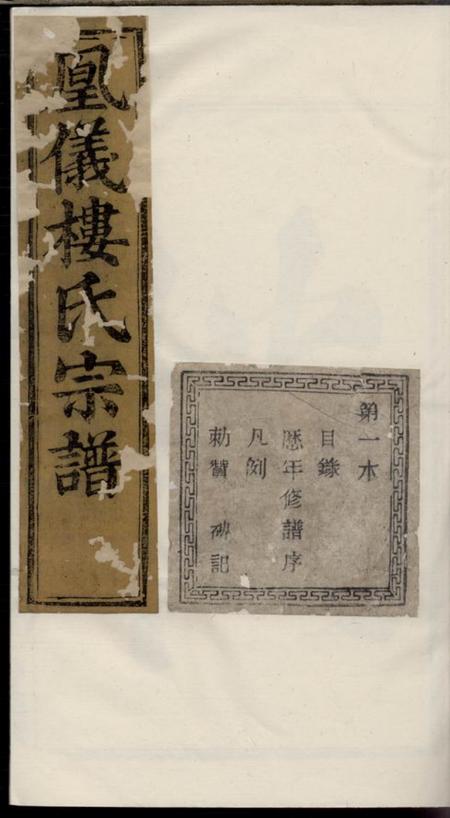 凰儀樓氏宗譜
第一本
目錄
歷年修譜序
凡例
勅贊 碑記